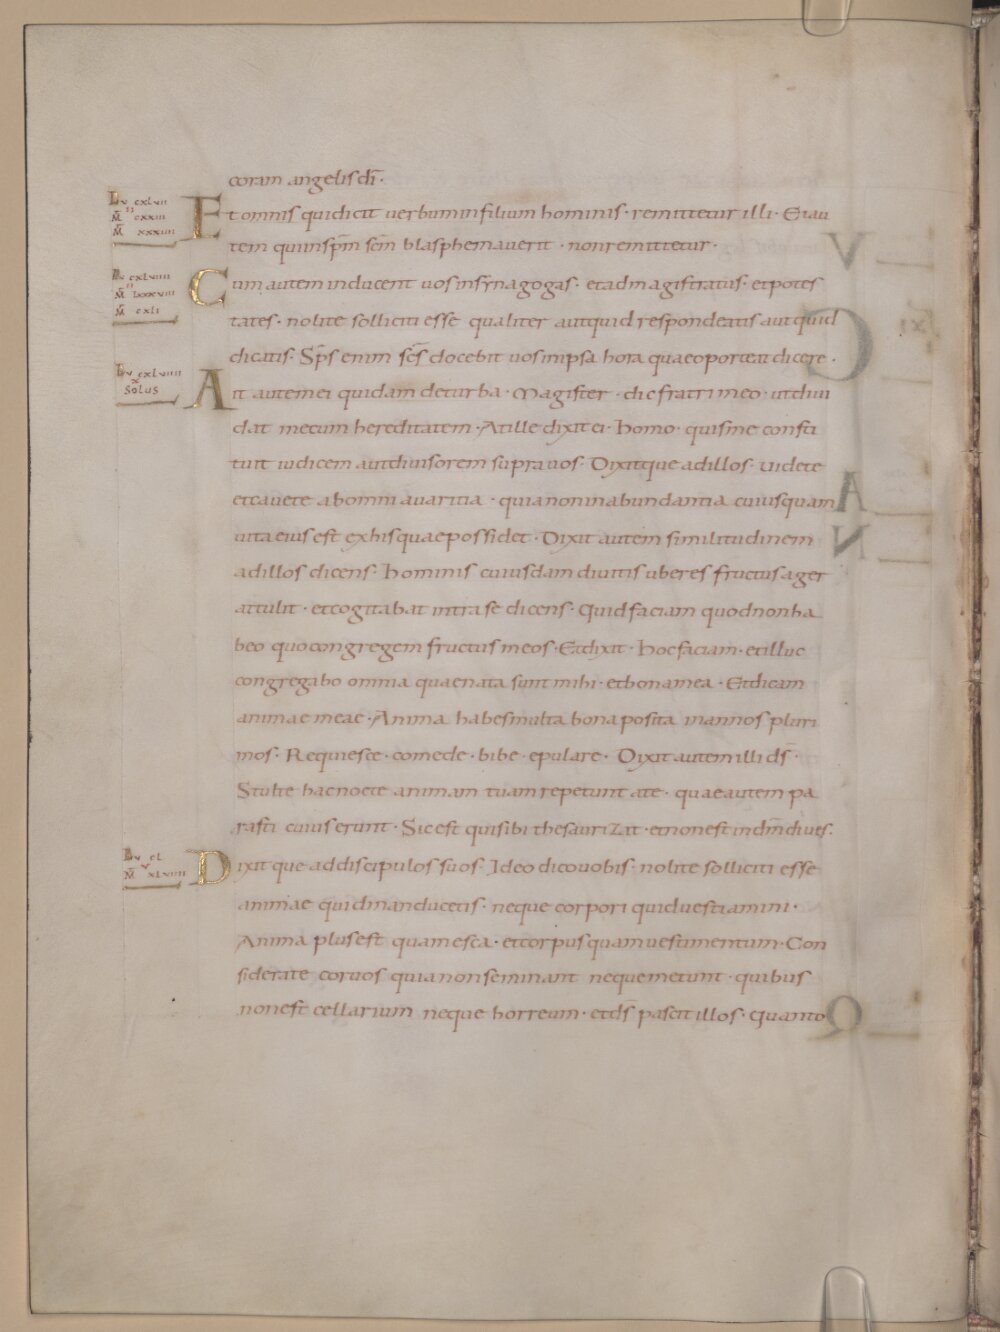 coram angelis dī·
Lv cxlvii
M̄ cxxiii
M̄ xxxvii
Et omnis qui dicit uerbum in filium hominis· remittetur illi· Ei au
tem qui in sp̄m scm̄ blasphemauerit · non remittetur·
Lv cxlviii
M̄ lxxxviii
M̄ cxli
Cum autem inducent uos in synagogas· et ad magistratus· et potes
tates· nolite solliciti esse qualiter aut quid respondeatis aut quid
dicatis· Sp̄s enim scs̄ docebit uos in ipsa hora quae oporteat dicere·
Lv cxlviiii
x
Solus
Ait autem ei quidam de turba· Magister· dic fratri meo· ut diui
dat mecum hereditatem· At ille dixit ei· homo· quis me consti
tuit iudicem aut diuisorem supra uos· Dixitque ad illos· uidete
et cauete ab omni auaritia· quia non in abundantia cuiusquam
uita eius est ex his quae possidet· Dixit autem similitudinem
ad illos dicens· hominis cuiusdam diuitis uberes fructus ager
attulit· et cogitabat intra se dicens· Quid faciam quod non ha
beo quo congregem fructus meos· Et dixit· hoc faciam· et illuc
congregabo omnia quae nata sunt mihi· et bona mea· Et dicam
animae meae· Anima habes multa bona posita in annos pluri
mos· Requiesce· comede· bibe· epulare· Dixit autem illi ds̄·
Stulte hac nocte animam tuam repetunt a te· quae autem pa
rasti cuius erunt· Sic est qui sibi thesaurizat· et non est in dm̄ diues·
Lv cl
v
M̄ xlviiii
Dixitque ad discipulos suos· Ideo dico uobis· nolite solliciti esse
animae quid manducetis· neque corpori quid uestiamini·
Anima plus est quam esca· et corpus quam uestimentum· Con
siderate coruos quia non seminant neque metunt· quibus
non est cellarium neque horreum· et ds̄ pascit illos· Quanto